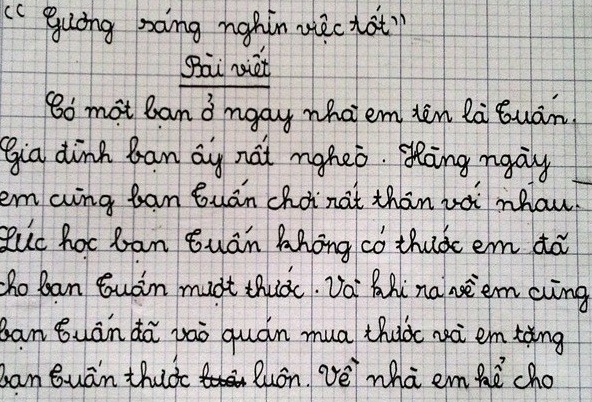 “Gương sáng nghìn việc tốt”
Bài viết
Có một bạn ở ngay nhà em tên là Tuấn.
Gia đình bạn ấy rất nghèo. Hàng ngày
em cùng bạn Tuấn chơi rất thân với nhau.
Lúc học bạn Tuấn không có thước em đã
cho bạn Tuấn mượt thước. Và khi ra về em cùng
bạn Tuấn đã vào quán mua thước và em tặng
bạn Tuấn thước luôn. Về nhà em kể cho